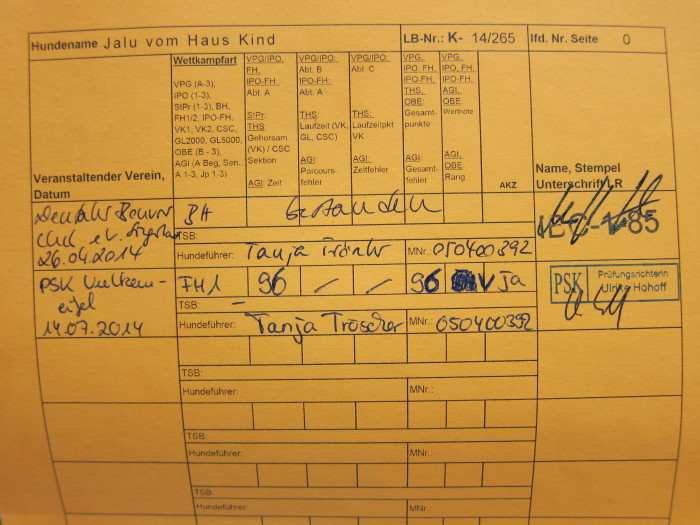 Hundename Jalu vom Haus Kind LB-Nr.: K- 14/265 lfd. Nr. Seite 0
Veranstaltender Verein, Datum
Wettkampfart
VPG (A-3),
IPO (1-3),
StPr (1-3), BH,
FH1/2, IPO-FH,
VK1, VK2, CSC,
GL2000, GL5000,
OBE (B - 3),
AGI (A Beg, Sen.,
A 1-3, Jp 1-3)
VPG/IPO,
FH,
IPO-FH:
Abt. A
StPr
THS
Gehorsam
(VK) / CSC
Sektion
AGI: Zeit
VPG/IPO:
Abt. B
IPO-FH:
Abt. A
THS:
Laufzeit (VK,
GL, CSC)
AGI:
Parcours-
fehler
VPG/IPO:
Abt. C
THS:
Laufzeitpkt
VK
AGI:
Zeitfehler
VPG,
IPO, FH,
IPO-FH,
THS,
OBE:
Gesamt-
punkte
AGI:
Gesamt-
fehler
VPG,
IPO, FH,
IPO-FH,
AGI,
OBE:
Wertnote
AGI,
OBE:
Rang
AKZ
Name, Stempel
Unterschrift LR
BH Bestanden
Club e.V.
26.04.2014
TSB:
Hundeführer: Tanja MNr.: 050400392
PSK Vulkan-
eifel
14.07.2014
FH1 96 / / 96 V ja
TSB: –
Hundeführer: Tanja Tröscher MNr.: 050400392
PSK Prüfungsrichterin
Ulrike Hohoff
TSB:
Hundeführer: MNr.:
TSB:
Hundeführer: MNr.:
TSB:
Hundeführer: MNr.: